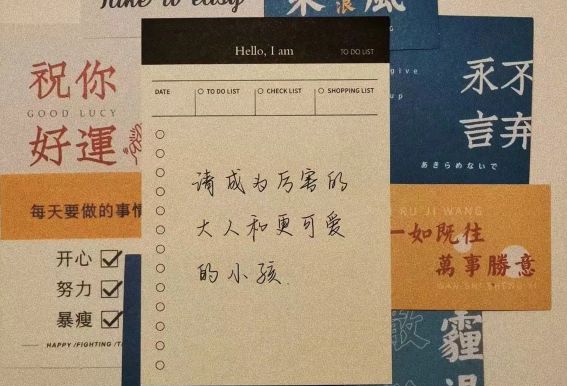 Take it easy
乘
浪
風
祝你
GOOD LUCY
好運
每天要做的事情
开心
努力
暴瘦
HAPPY /FIGHTING /T
Hello, I am
TO DO LIST
DATE
TO DO LIST
CHECK LIST
SHOPPING LIST
请成为厉害的
大人和更可爱
的小孩
give
up
永不
言弃
あきらめないで
RU JI WANG
一如既往
萬事勝意
WAN SHI SHENG YI
霾